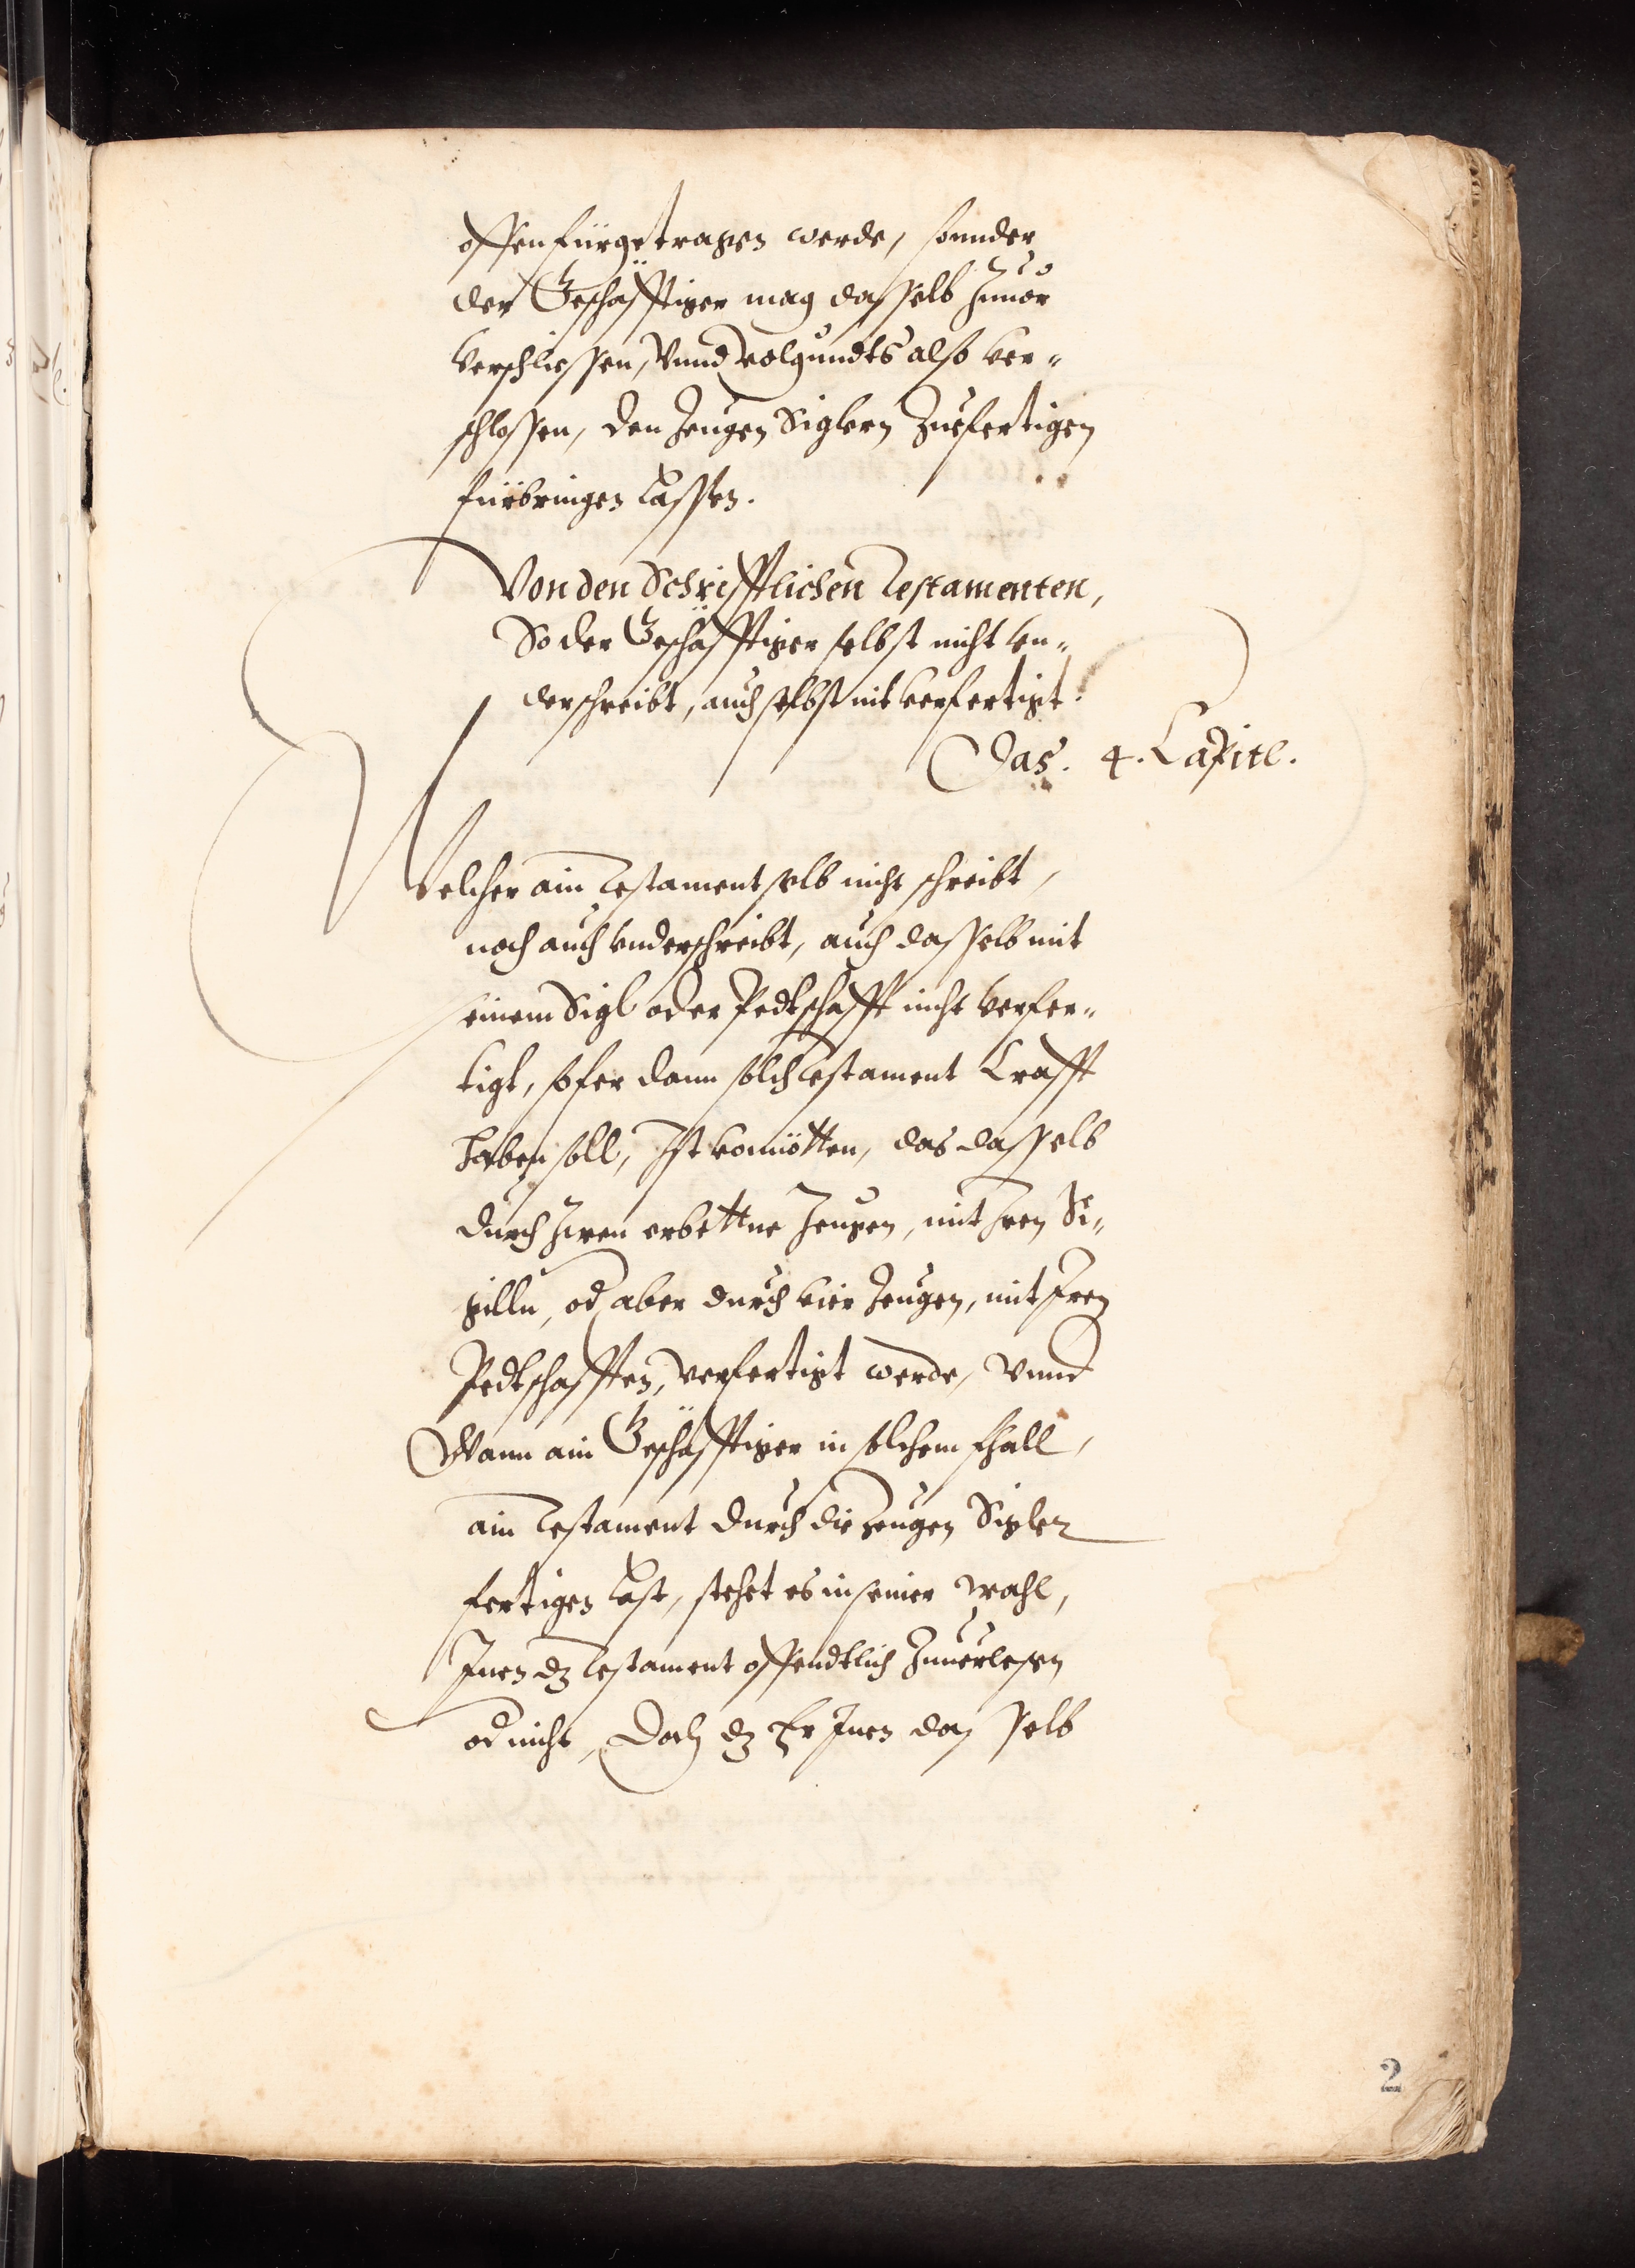 offen fürgetragen werde, sonnder
der Geschäfftiger mag dasselb Zuuor
verschliessen, vnnd volgundts also ver„
schlossen, den Zeugen Siglern Zuefertigen
fürbringen lassen.
Von den Schrifftlichen Testamenten,
So der Geschäfftiger selbst nicht vn„
derschreibt, auch selbst nit verfertigt.
Das. 4. Capitl.
Welcher ain Testament selb nicht schreibt,
noch auch vnderschreibt, auch dasselb mit
seinem Sigl oder Pedtschafft nicht verfer„
tigt, sofer dann solch Testament Crafft
haben soll, Ist vonnötten, das dasselb
durch Zwen erbettne Zeugen, mit Iren Si„
gilln, od aber durch vier Zeugen, mit Iren
Pedtschafften, verfertigt werde, Vnnd
Wann ain Geschäfftiger in solchem fhall,
ain Testament durch die Zeugen Sigler
fertigen last, stehet es in seiner wahl,
Inen dz Testament offendtlich Zuuerlesen
od nicht, Doch dz Er Inen das selb
2